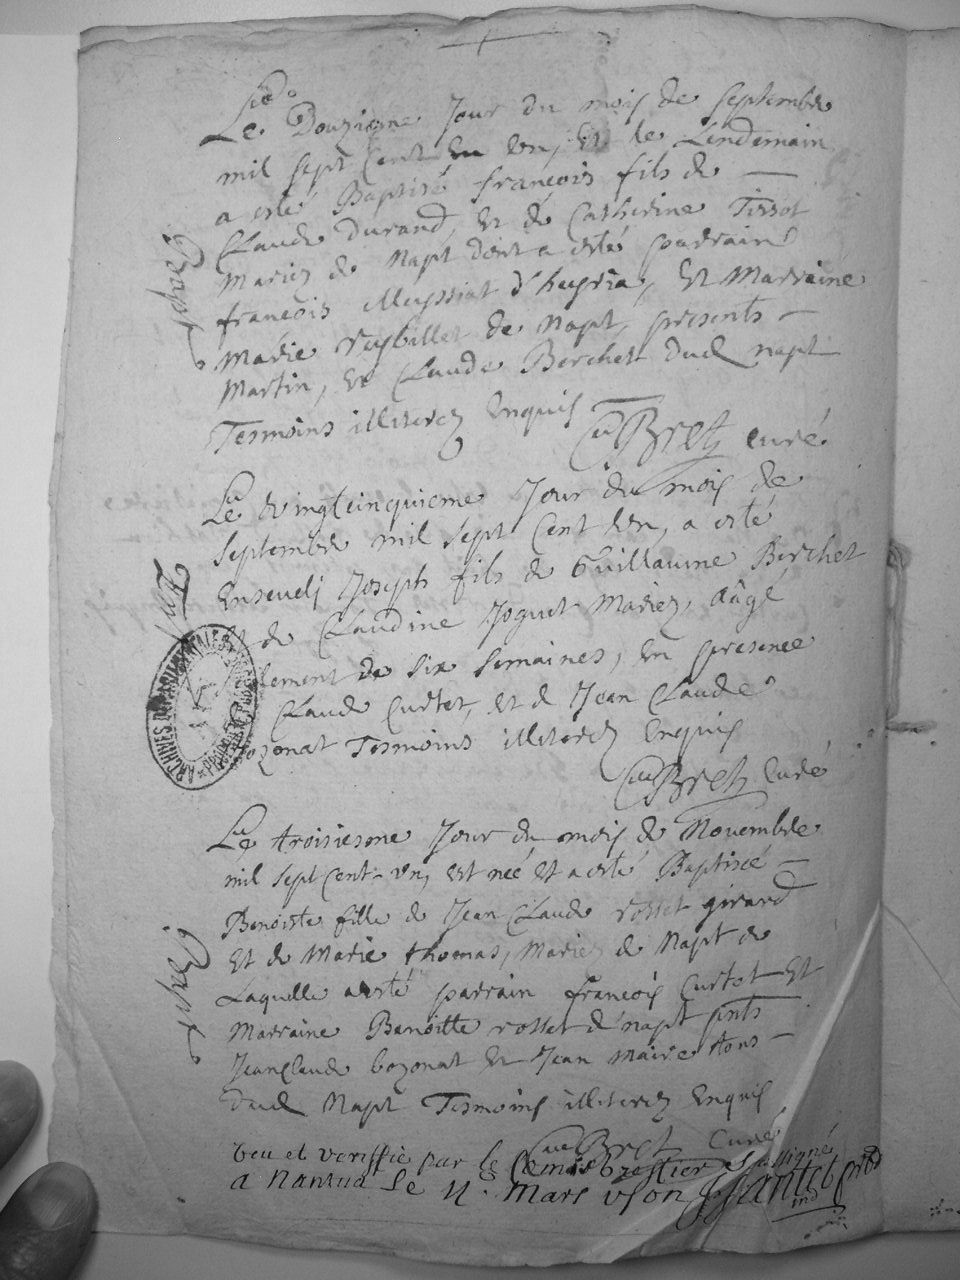 Le Douziesme Jour du mois de septembre
mil sept Cent Un, Et le Lendemain
a esté Baptisé françois fils de
Claude Durand, Et de Catherine Tissot
Mariez de Napt dont a esté parrain
françois Meyssiat d'heyria, Et Marraine
Marie Reybillet de Napt, presents
Martin, Et Claude Berchet dud napt
Tesmoins illiterez Enquis
Bret curé
Le vingtcinquieme Jour du mois de
septembre mil sept Cent Un, a esté
Ensevely Joseph fils de Guillaume Berchet
Et de Claudine Joguet Mariez, aâgé
lement de six semaines, En presence
Claude Curtet, et d Jean Claude
ozonat Tesmoins illiterez Enquis
Bret Curé
Le troisiesme Jour du mois de Novembre
mil sept Cent Un, est née Et a esté Baptisée
Benoiste fille de Jean Claude rosset girard
Et de Marie thomas, Mariez de Napt de
Laquelle a esté parrain françois Curtet Et
Marraine Benoitte rosset d napt pnts
JeanClaude bozonat Et Jean Maire
dud Napt Tesmoins illiterez Enquis
Bret Curé
veu et veriffié par le Commis greffier Soussigné
a Nantua Le Mars
ARCHIVES DEPARTEMENTALES